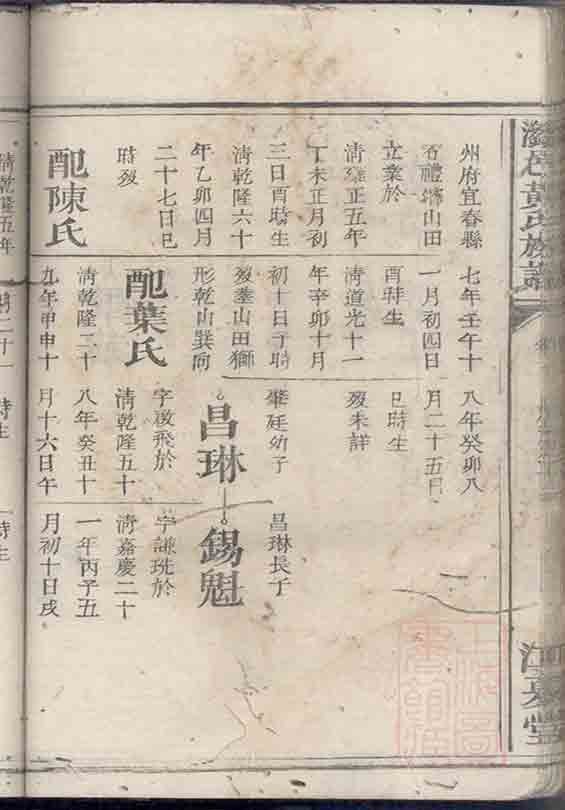 邑黃氏族譜
江夏堂
州府宜春縣
石禮 山田
立業於
清雍正五年
丁未正月初
三日酉時生
清乾隆六十
年乙卯四月
二十七日巳
時歿
配陳氏
七年壬午十
一月初四日
酉時生
清道光十一
年辛卯十月
初十日子時
歿葬山田獅
形乾山巽向
配葉氏
清乾隆二十
九年甲申十
八年癸卯八
月二十五日
巳時生
歿未詳
肇廷幼子
昌琳
字 飛於
清乾隆五十
八年癸丑十
月十六日午
昌琳長子
錫魁
字謙珖於
清嘉慶二十
一年丙子五
月初十日戌
清乾隆五年
時生
時生